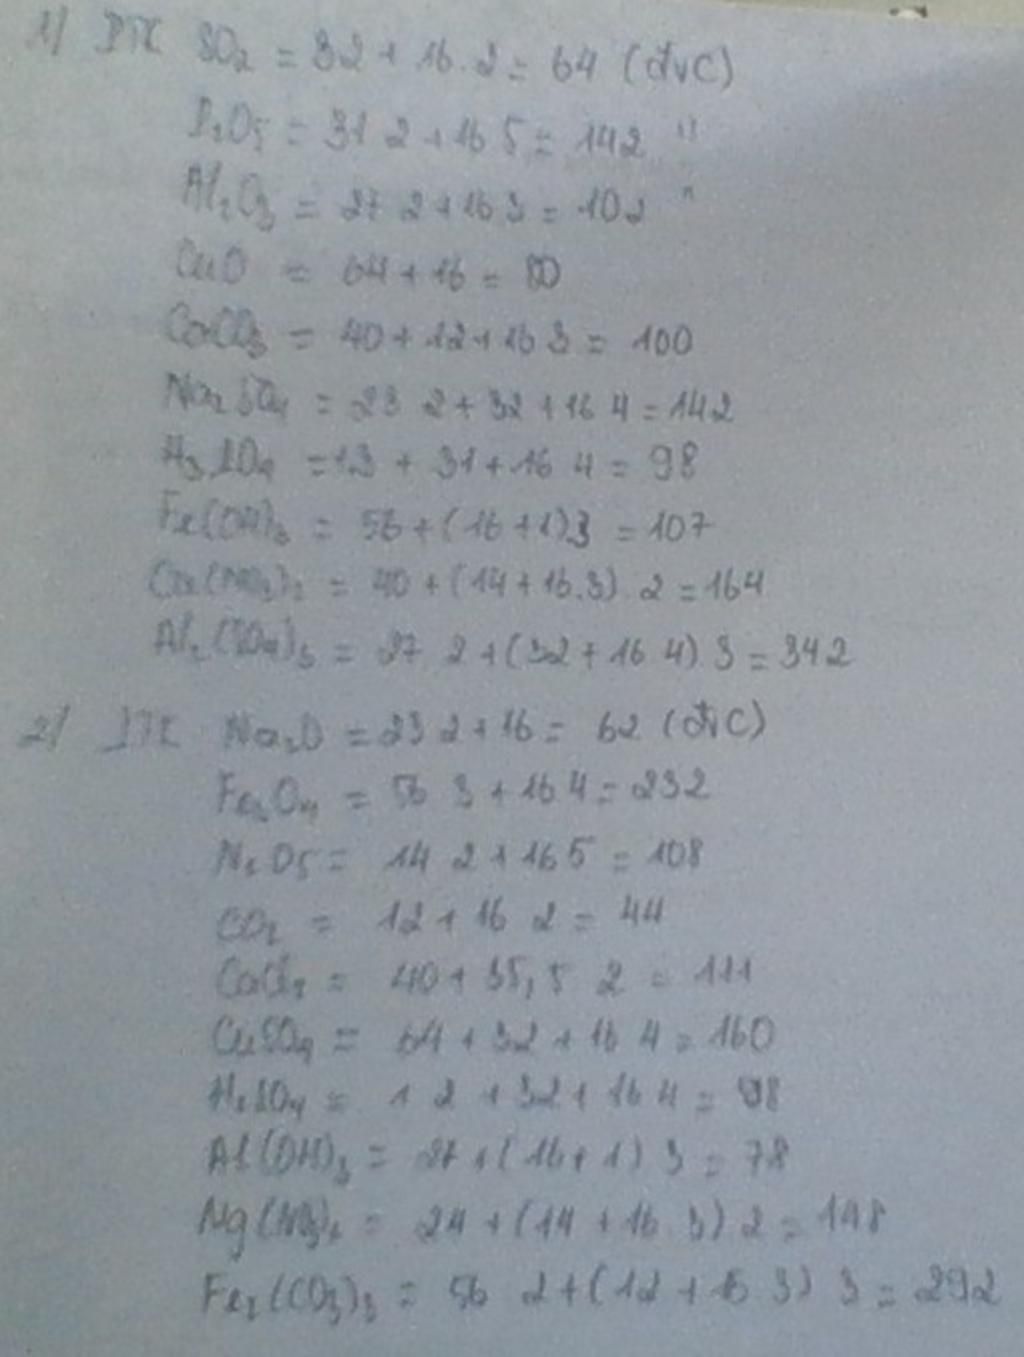 1) PTK SO₂ = 32 + 16.2 = 64 (đvC)
P₂O₅ = 31 2 + 16 5 = 142 "
Al₂O₃ = 27 2 + 16 3 = 102 "
CuO = 64 + 16 = 80
CaCO₃ = 40 + 12 + 16 3 = 100
Na₂SO₄ = 23 2 + 32 + 16 4 = 142
H₃PO₄ = 1.3 + 31 + 16 4 = 98
Fe(OH)₃ = 56 + (16 + 1).3 = 107
Ca(NO₃)₂ = 40 + (14 + 16.3) 2 = 164
Al₂(SO₄)₃ = 27 2 + (32 + 16 4) 3 = 342
2) PTK Na₂O = 23 2 + 16 = 62 (đvC)
Fe₃O₄ = 56 3 + 16 4 = 232
N₂O₅ = 14 2 + 16 5 = 108
CO₂ = 12 + 16 2 = 44
CaCl₂ = 40 + 35,5 2 = 111
CuSO₄ = 64 + 32 + 16 4 = 160
H₂SO₄ = 1 2 + 32 + 16 4 = 98
Al(OH)₃ = 27 + (16 + 1) 3 = 78
Mg(NO₃)₂ = 24 + (14 + 16 3) 2 = 148
Fe₂(CO₃)₃ = 56 2 + (12 + 16 3) 3 = 292